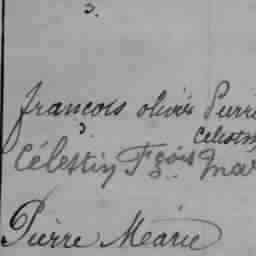 3.
françois olivier Pierre
3
Celestin
Célestin Fçois Mar
3.
Pierre Mearie